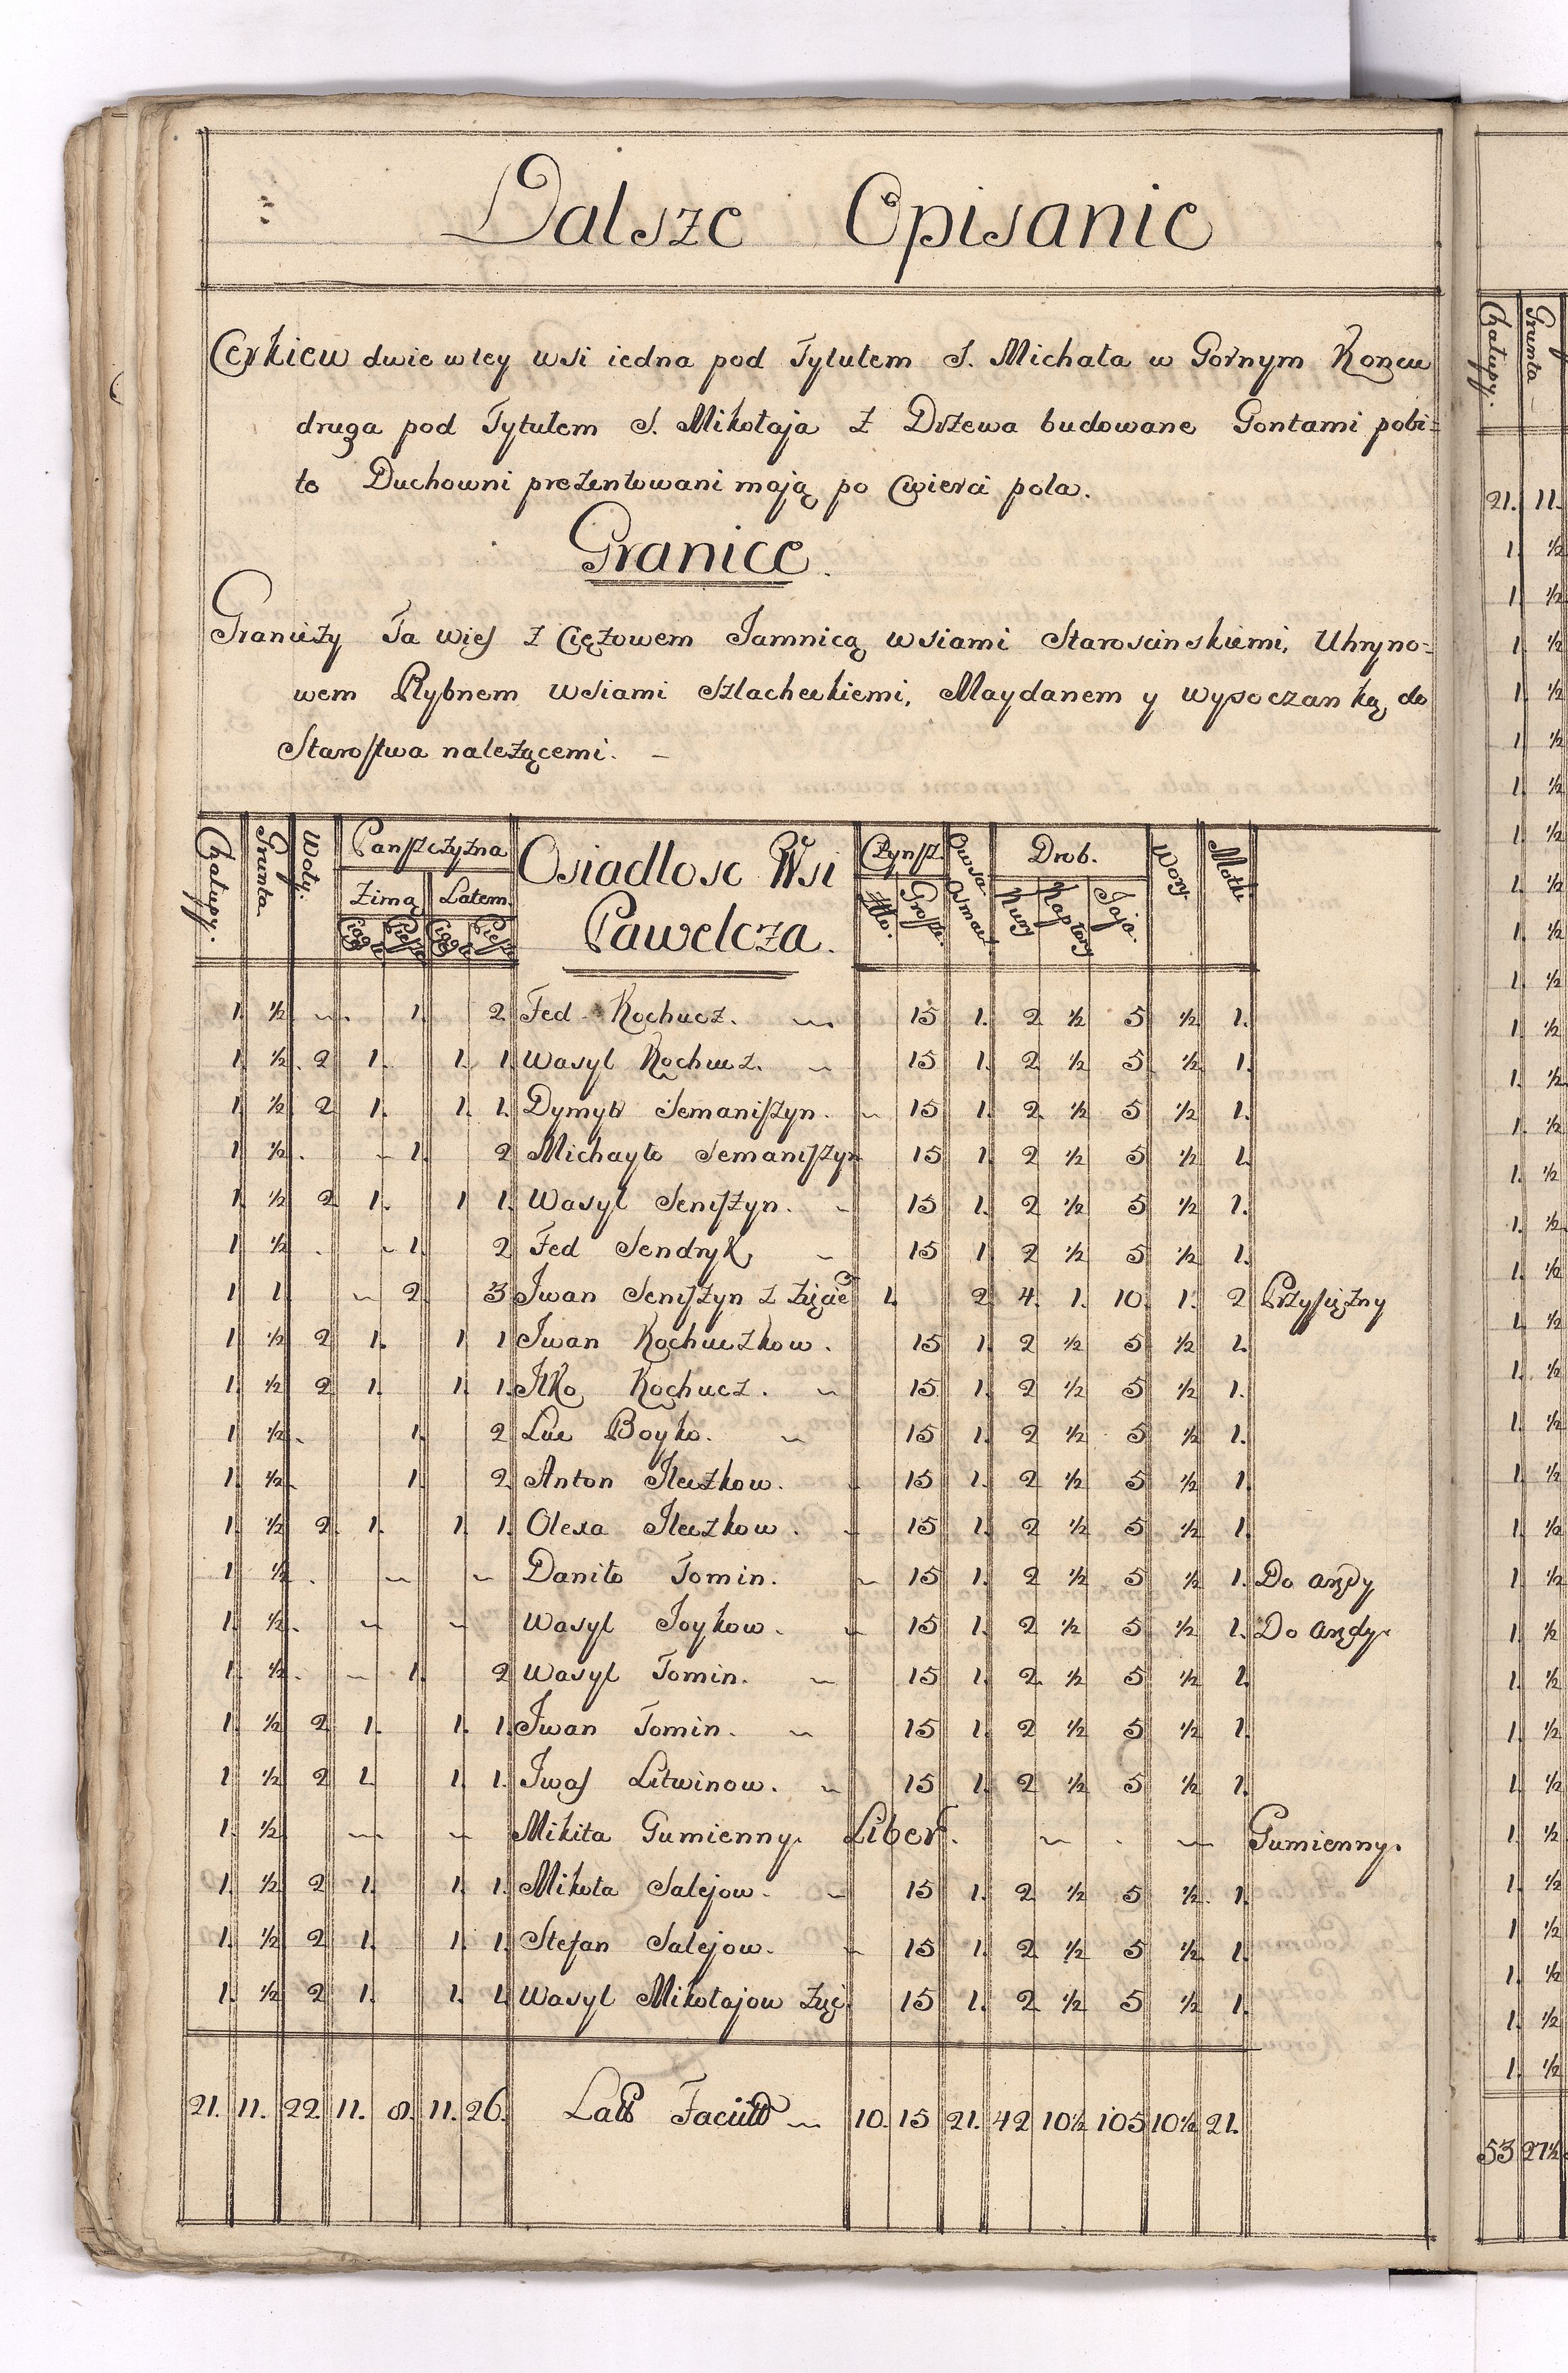 Dalsze Opisanie
Cerkiew dwie w tey wsi iedna pod Tytułem S. Michała w Gornym Koncu
druga pod Tytułem S. Mikołaja z Drzewa budowane Gontami pobi=
te Duchowni prezentowani mają po Cwierci pola.
Granice.
Graniczy Ta wieś z Ciężowem Jamnicą wsiami Staroscinskiemi, Uhryno=
wem Rybnem wsiami Szlacheckiemi, Maydanem y wysoczanką do
Starostwa należącemi. –
Chałupy. Grunta Woły. Panszczyzna Osiadlosc Wsi Czynsz Owsa Drob. Wory. Motki
Zimą Latem. Pawelcza. Złło. Grosze. Kury Kapłony Jaja.
Ciągłe Piesze Ciągłe Piesze
1. ½ 1. 2 Fed Kochucz. 15 1. 2 ½ 5 ½ 1.
1. ½ 2 1. 1. 1. Wasyl Kochucz. 15 1. 2 ½ 5 ½ 1.
1. ½ 2 1. 1. 1. Dymytr Semaniszyn. 15 1. 2 ½ 5 ½ 1.
1. ½ 1. 2 Michayło Semaniszyn 15 1. 2 ½ 5 ½ 1.
1. ½ 2 1. 1 1. Wasyl Seniszyn. 15 1. 2 ½ 5 ½ 1.
1. ½ 1. 2 Fed Sendryk 15 1. 2 ½ 5 ½ 1.
1 1. 2 3 Iwan Seniszyn z Zięcie 1. 2 4. 1. 10. 1. 2 Przysiężny
1. ½ 2 1. 1 1 Iwan Kochuczkow. 15 1. 2 ½ 5 ½ 1.
1. ½ 2 1. 1. 1. Ilko Kochucz. 15 1. 2 ½ 5 ½ 1.
1. ½ 1. 2 Luc Boyko. 15 1. 2 ½ 5 ½ 1.
1. ½ 1. 2 Anton Ileczkow. 15 1. 2 ½ 5 ½ 1.
1. ½ 2. 1. 1. 1. Olexa Ileczkow. 15 1. 2 ½ 5 ½ 1.
1. ½ Daniło Tomin. 15 1. 2 ½ 5 ½ 1. Do
1. ½ Wasyl Joykow. 15 1. 2 ½ 5 ½ 1. Do
1. ½ 1. 2 Wasyl Tomin. 15 1. 2 ½ 5 ½ 1.
1. ½ 2 1. 1. 1. Iwan Tomin. 15 1. 2 ½ 5 ½ 1.
1. ½ 2 1. 1. 1. Iwaś Litwinow. 15 1. 2 ½ 5 ½ 1.
1. ½ Mikita Gumienny. Liber. Gumienny.
1. ½ 2 1. 1. 1. Mikoła Salejow. 15 1. 2 ½ 5 ½ 1.
1. ½ 2 1. 1. 1. Stefan Salejow. 15 1. 2 ½ 5 ½ 1.
1. ½ 2 1. 1. 1. Wasyl Mikołajow Zięć 15 1. 2 ½ 5 ½ 1.
21. 11. 22. 11. 8. 11. 26. Facitt 10. 15 21. 42 10½ 105 10½ 21.
Chałupy. Grunta
21. 11.
1. ½
1. ½
1. ½
1. ½
1. ½
1. ½
1. ½
1. ½
1. ½
1. ½
1. ½
1. ½
1. ½
1. ½
1. ½
1. ½
1. ½
1. ½
1. ½
1. ½
1. ½
1. ½
1. ½
1. ½
1. ½
1. ½
1. ½
1. ½
1. ½
1. ½
1. ½
1. ½
53 27½